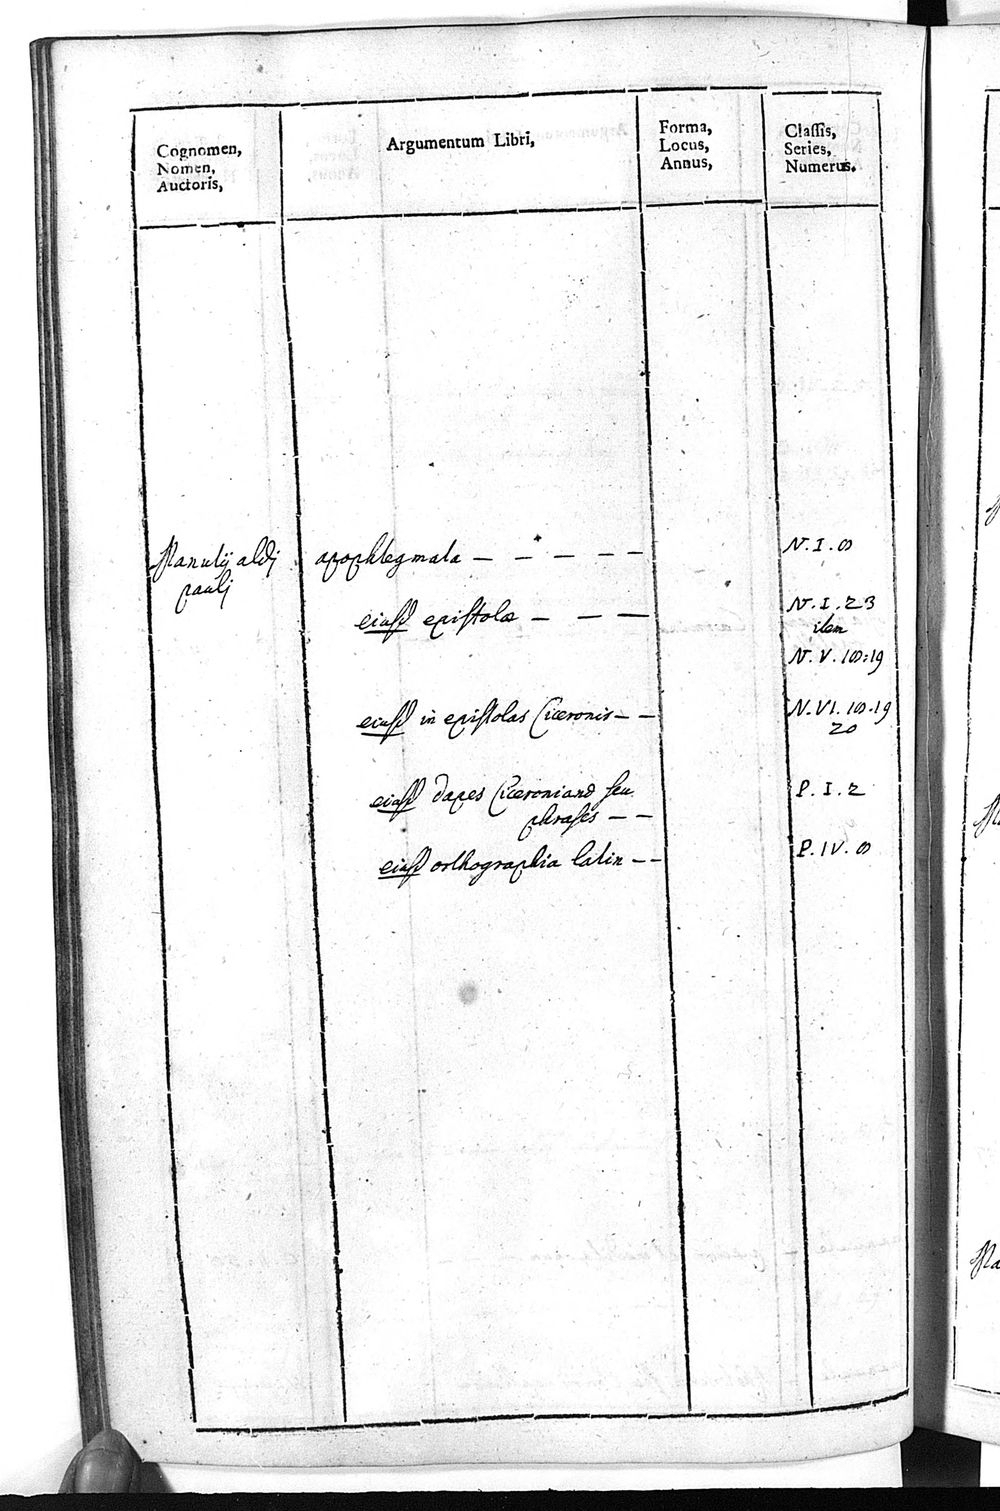 Cognomen,
Nomen,
Auctoris,
Argumentum Libri,
Forma,
Locus,
Annus,
Classis,
Series,
Numerus.
Manutij aldj
paulj
apophtegmata – – – – –
N. I. 8
eiusd epistolæ – – –
N. I. 23
item
N. V. 18:19
eiusd in epistolas Ciceronis – –
N. VI. 18.19
20
eiusd dapes Ciceronianæ seu
phrases – –
P. I. 2
eiusd orthographia latin – –
P. IV. 8